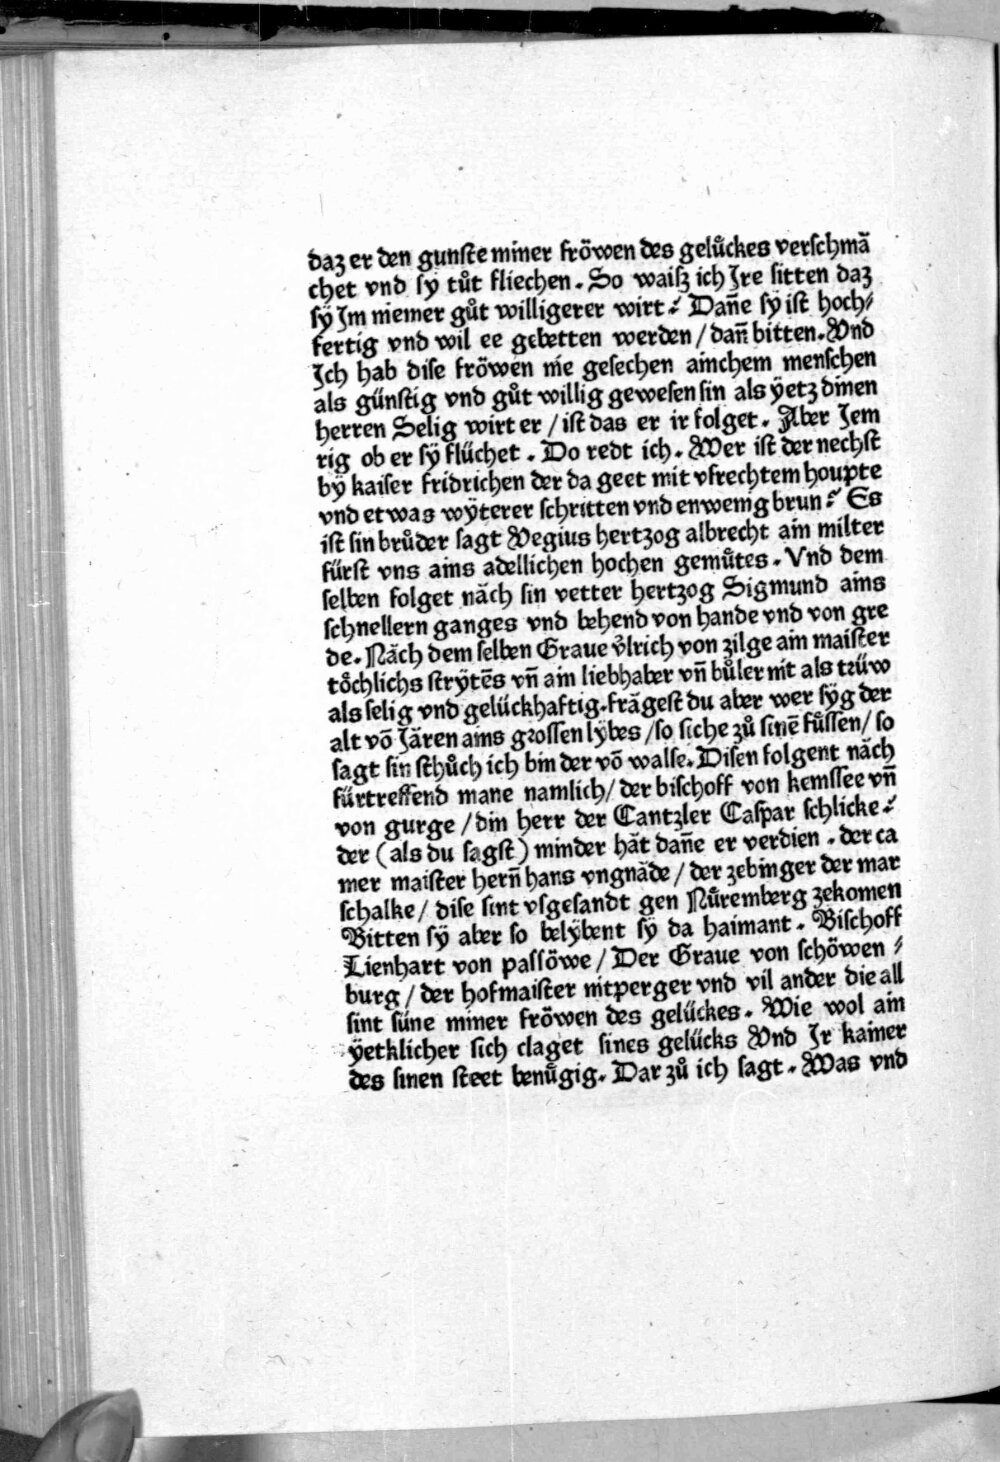 daz er den gunste miner fröwen des gelůckes verschmā
chet vnd sy tůt fliechen. So waisz ich Jre sitten daz
sÿ Jm niemer gůt willigerer wirt: Dañe sy ist hoch/
fertig vnd wil ee gebetten werden / dañ bitten. Vnd
Jch hab dise fröwen nie gesechen ainchem menschen
als günstig vnd gůt willig gewesen sin als ÿetz dinen
herren Selig wirt er / ist das er ir folget. Aber Jem
rig ob er sÿ flüchet. Do redt ich. Wer ist der nechst
bÿ kaiser fridrichen der da geet mit vfrechtem houpte
vnd etwas wÿterer schritten vnd enwenig brun: Es
ist sin brůder sagt Vegius hertzog albrecht ain milter
fürst vns ains adellichen hochen gemůtes. Vnd dem
selben folget nāch sin vetter hertzog Sigmund ains
schnellern ganges vnd behend von hande vnd von gre
de. Nāch dem selben Graue vͦlrich von zilge ain maister
tŏchlichs strÿtēs vñ ain liebhaber vñ bůler nit als trüw
als selig vnd gelückhaftig. frāgest du aber wer sÿg der
alt vō Jāren ains grossen lÿbes / so siche zů sinē fůssen / so
sagt sin sthůch ich bin der vō walse. Disen folgent nāch
fürtreffend mane namlich / der bischoff von kemssee vñ
von gurge / din herr der Cantzler Caspar schlicke:
der (als du sagst) minder hāt dañe er verdien. der ca
mer maister herñ hans vngnāde / der zebinger der mar
schalke / dise sint vsgesandt gen Nůremberg zekomen
Bitten sÿ aber so belÿbent sÿ da haimant. Bischoff
Lienhart von passöwe / Der Graue von schöwen /
burg / der hofmaister nitperger vnd vil ander die all
sint süne miner fröwen des gelückes. Wie wol ain
ÿetklicher sich claget sines gelücks Vnd Jr kainer
des sinen steet benůgig. Dar zů ich sagt. Was vnd